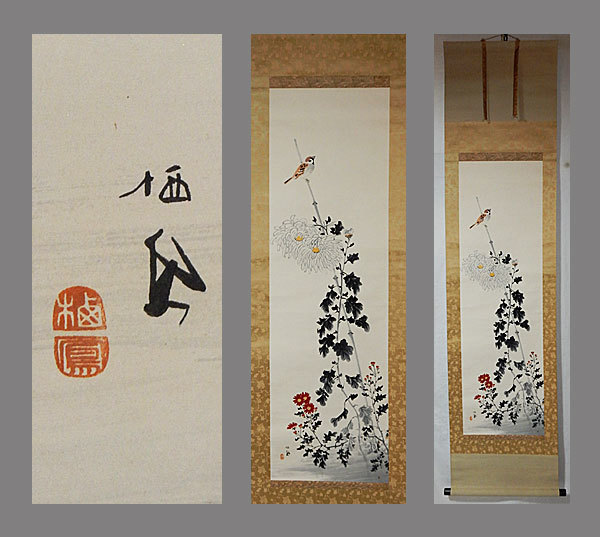 栖鳳
栖鳳